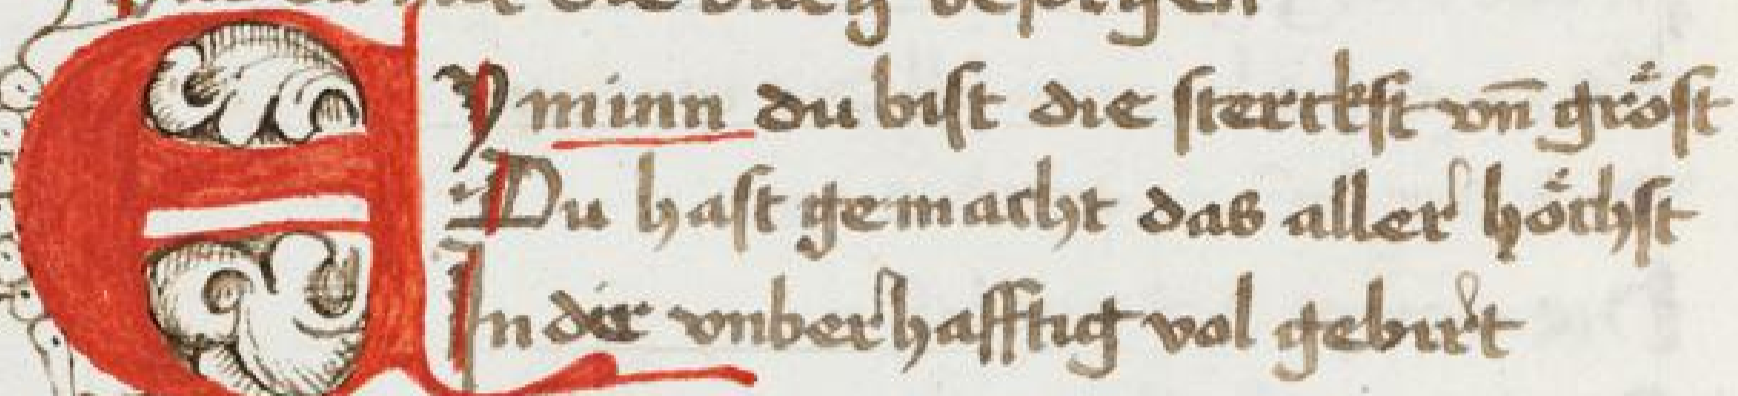 EY minn du bist die sterckſt vn̄ groͤſt
Du haſt gemacht das aller hoͤchſt
In die vnberhafftig vol gebirt